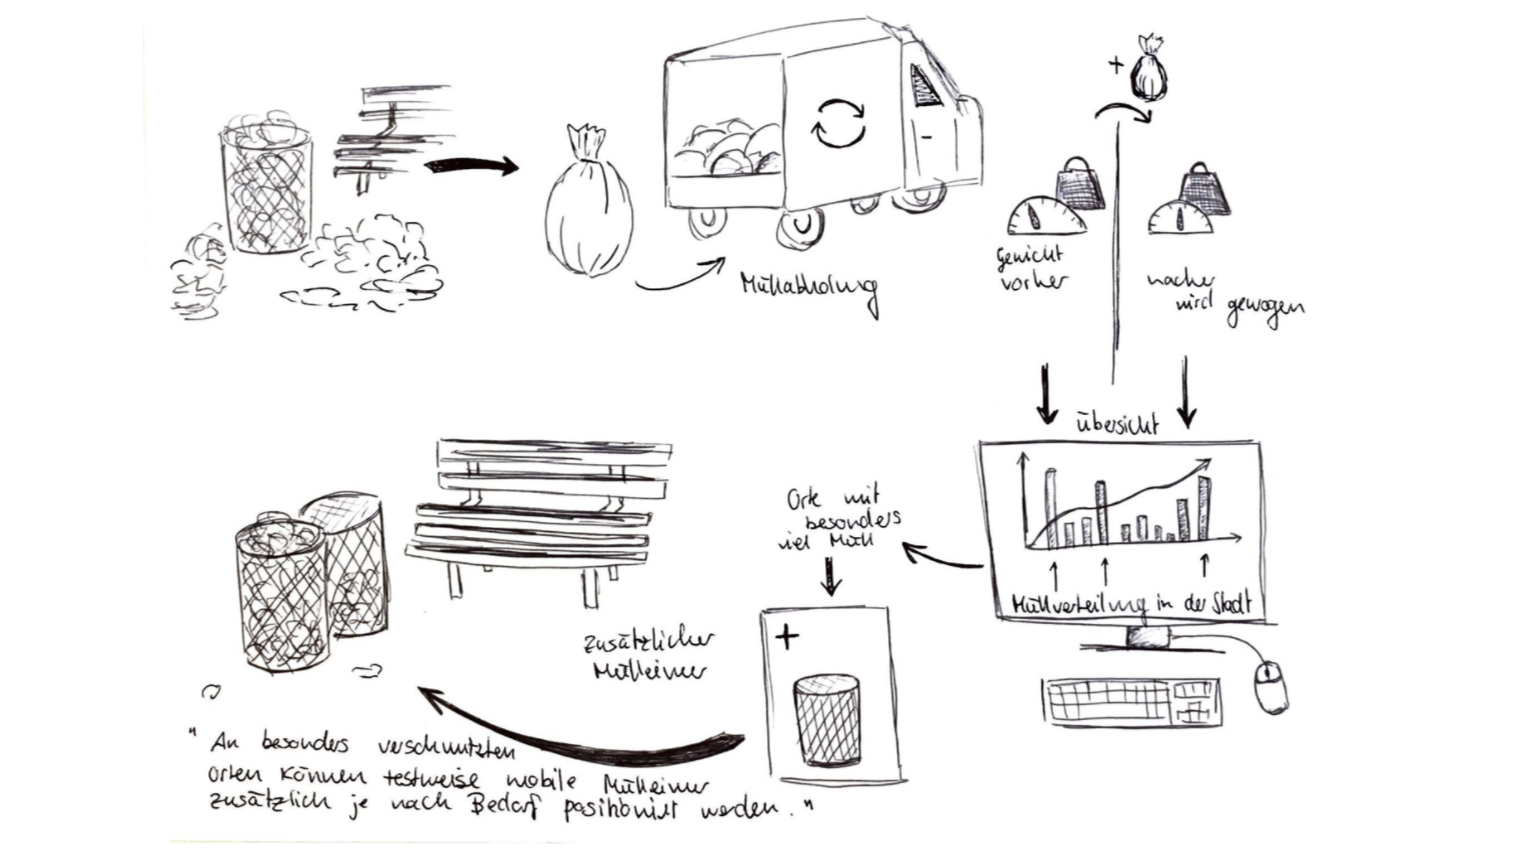 +
Müllabholung
Gewicht
vorher
nacher
wird gewogen
übersicht
Müllverteilung in der Stadt
Orte mit
besonders
viel Müll
+
zusätzlicher
Mülleimer
" An besonders verschmutzten
Orten können testweise mobile Mülleimer
zusätzlich je nach Bedarf positioniert werden. "